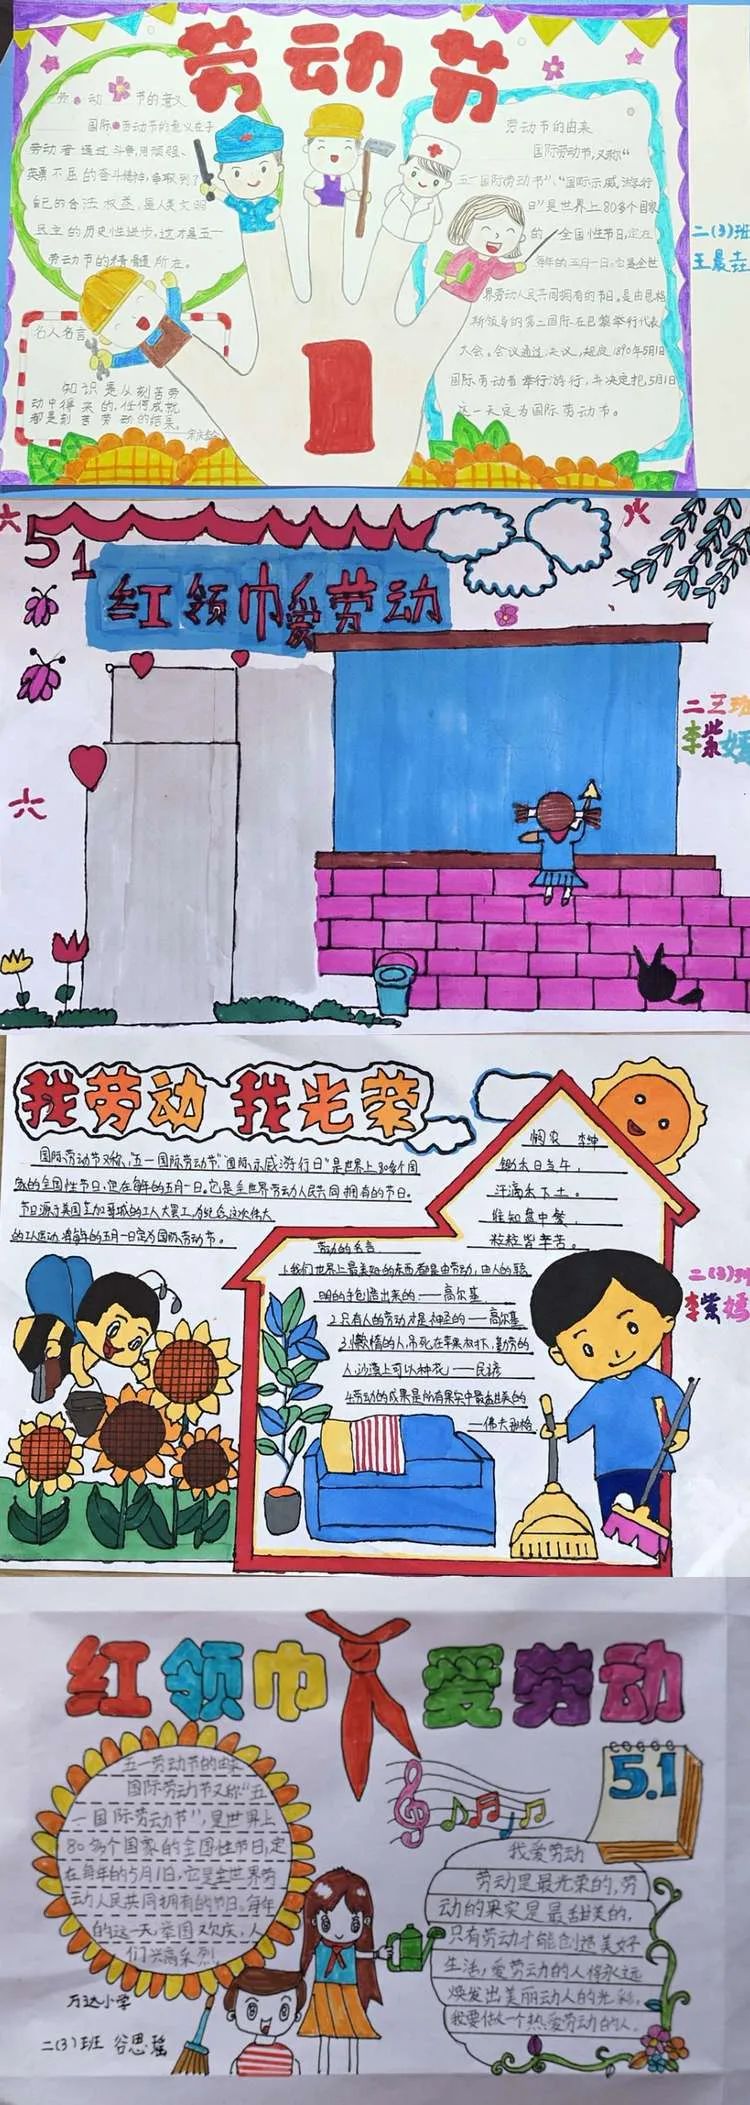 劳动节
劳动节的意义
国际劳动节的意义在于
劳动者通过斗争,用顽强、
英勇不屈的奋斗精神,争取到了
自己的合法权益,是人类文明
民主的历史性进步,这才是五一
劳动节的精髓所在。
名人名言
知识是从刻苦劳
动中得来的,任何成就
都是刻苦劳动的结果。
宋庆龄
劳动节的由来
国际劳动节,又称“
五一国际劳动节”、“国际示威游行
日”是世界上80多个国家
的全国性节日,定在
每年的五月一日。它是全世
界劳动人民共同拥有的节日。是由恩格
斯领导的第二国际在巴黎举行代表
大会。会议通过决议,规定1890年5月1日
国际劳动者举行游行,并决定把5月1日
这一天定为国际劳动节。
二(3)班
王晨垚
51
红领巾爱劳动
二三班
李紫嫣
六
我劳动 我光荣
国际劳动节又称,“五一国际劳动节”“国际示威游行日”是世界上80多个国
家的全国性节日,定在每年的五月一日。它是全世界劳动人民共同拥有的节日。
节日源于美国芝加哥城的工人大罢工,为纪念这次伟大
的工人运动,将每年的五月一日定为国际劳动节。
悯农 李绅
锄禾日当午,
汗滴禾下土。
谁知盘中餐,
粒粒皆辛苦。
劳动的名言
1.我们世界上最美好的东西都是由劳动,由人的聪
明的手创造出来的——高尔基
2.只有人的劳动才是神圣的——高尔基
3.懒惰的人,吊死在苹果树下,勤劳的
人,沙漠上可以种花——民谚
4.劳动的成果是所有果实中最甜美的
二(3)班
李紫嫣
红领巾爱劳动
5.1
五一劳动节的由来
国际劳动节又称“五
一国际劳动节”,是世界上
80多个国家的全国性节日,定
在每年的5月1日,它是全世界劳
动人民共同拥有的节日。每年
的这一天,举国欢庆,人
们兴高采烈。
万达小学
二(3)班 谷思瑶
我爱劳动
劳动是最光荣的,劳
动的果实是最甜美的,
只有劳动才能创造美好
生活,爱劳动的人将永远
焕发出美丽动人的光彩,
我要做一个热爱劳动的人.